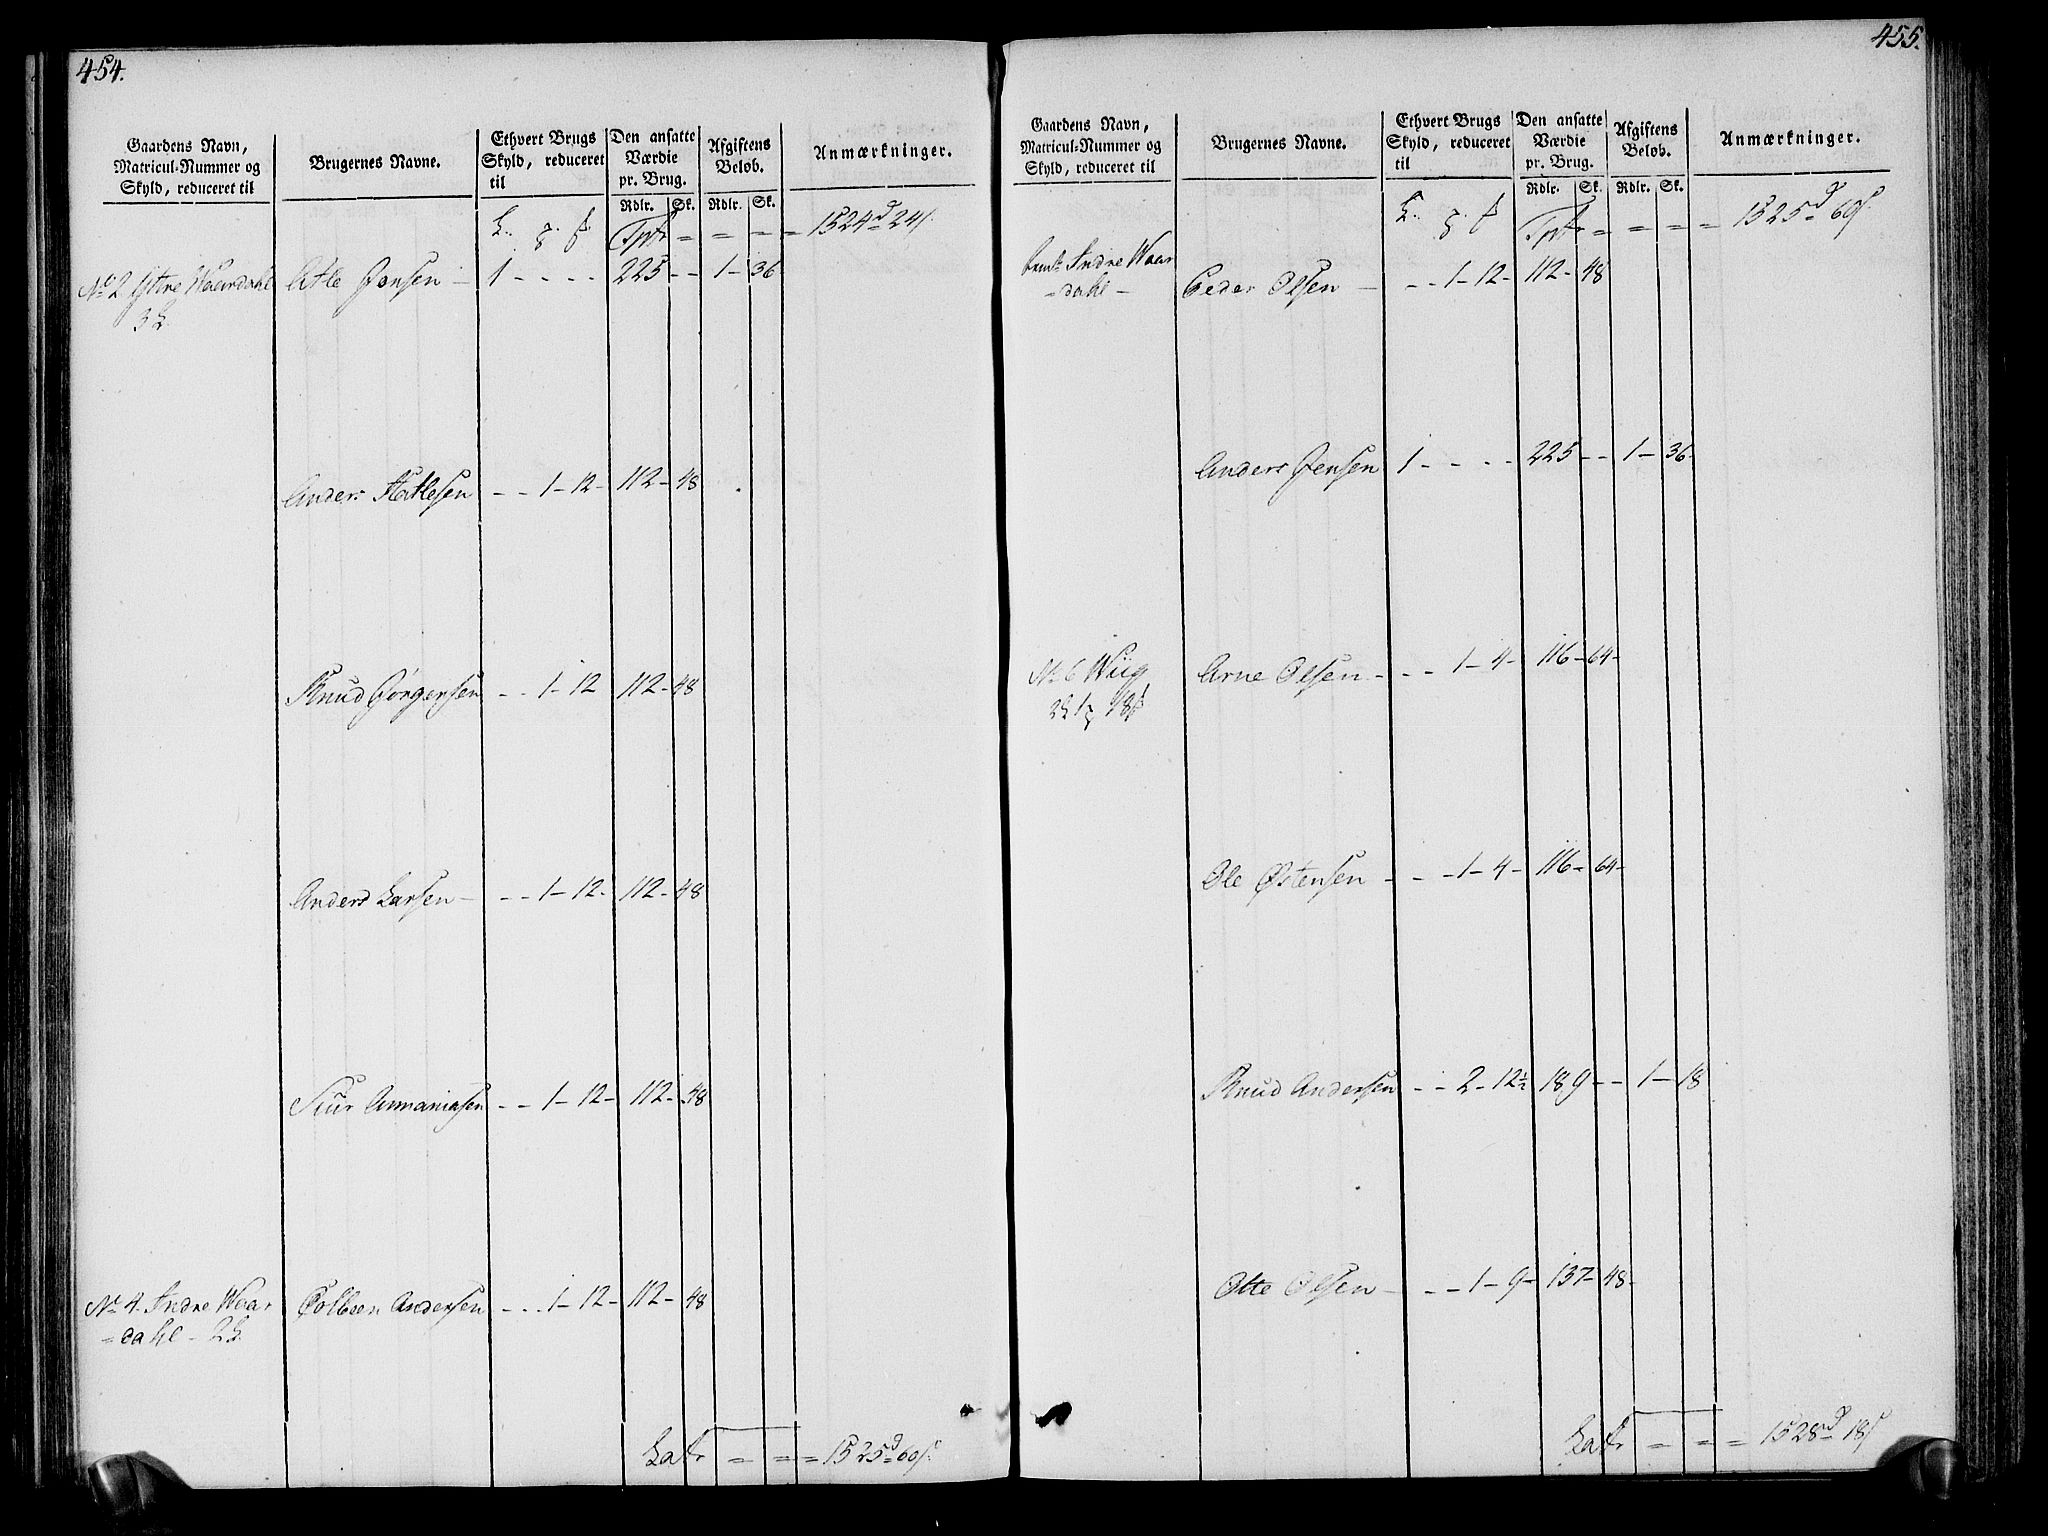 454.
Gaardens Navn, Matricul-Nummer og Skyld, reduceret til
Brugernes Navne.
Ethvert Brugs Skyld, reduceret til
Den ansatte Værdie pr. Brug.
Afgiftens Beløb.
Anmærkninger.
Rdlr. Sk. Rdlr. Sk.
Tptr = = = = = 1524d 24s.
No 2 Ystre Waardahl Atle Jensen - 1 - - - - 225 - - 1 - 36
3
Anders Hatlesen - - 1 - 12 - 112 - 48
Knud Jørgensen - - 1 - 12 112 - 48
Anders Larsen - - - 1 - 12 - 112 - 48
Siur Annaniasen - - 1 - 12 - 112 - 48
No 4. Indre Waar Colbeen Andersen - - - 1 - 12 - 112 - 48
=dahl - 2
Latr = = = 1525d 60s.
455.
Gaardens Navn, Matricul-Nummer og Skyld, reduceret til
Brugernes Navne.
Ethvert Brugs Skyld, reduceret til
Den ansatte Værdie pr. Brug.
Afgiftens Beløb.
Anmærkninger.
Rdlr. Sk. Rdlr. Sk.
Tptr = = = = 1525d 60s.
Indre Waar
=dahl - Peder Olsen - - - 1 - 12 - 112 - 48
Anders Jensen 1 - - - - 225 - - 1 - 36
No 6 Wiig Arne Olsen - - - 1 - 4 - 116 - 64
Ole Østensen - - - 1 - 4 - 116 - 64
Knud Andersen - - 2 - 12½ 189 - - 1 - 18
Otte Olsen - - - 1 - 9 - 137 - 48
Latr = = = 1528d 18s